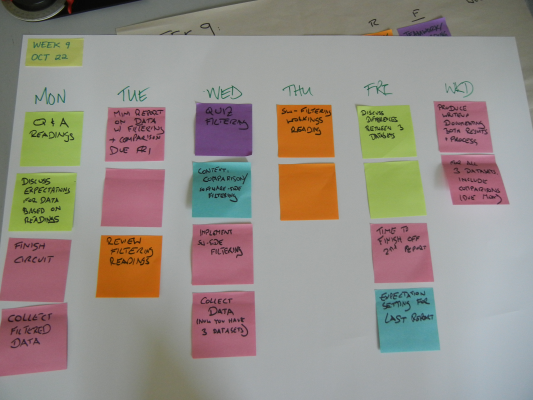 WEEK 9
OCT 22
R F
MON TUE WED THU FRI WKD
Q & A
READINGS
DISCUSS
EXPECTATIONS
FOR DATA
BASED ON
READINGS
FINISH
CIRCUIT
COLLECT
FILTERED
DATA
MINI REPORT
ON DATA
W FILTERING
→ COMPARISON
DUE FRI
REVIEW
FILTERING
READINGS
QUIZ
FILTERING
CONTEXT,
COMPARISON/
FILTERING
IMPLEMENT
SW-SIDE
FILTERING
COLLECT
DATA
(NOW YOU HAVE
3 DATASETS)
SW-FILTERING
READING
DISCUSS
DIFFERENCES
BETWEEN 3
DATASETS
TIME TO
FINISH OFF
2ND REPORT
EXPECTATION
SETTING FOR
LAST REPORT
PRODUCE
WRITEUP
DOCUMENTING
BOTH RESULTS
+ PROCESS
FOR ALL
3 DATASETS
INCLUDE
COMPARISONS
(DUE MON)